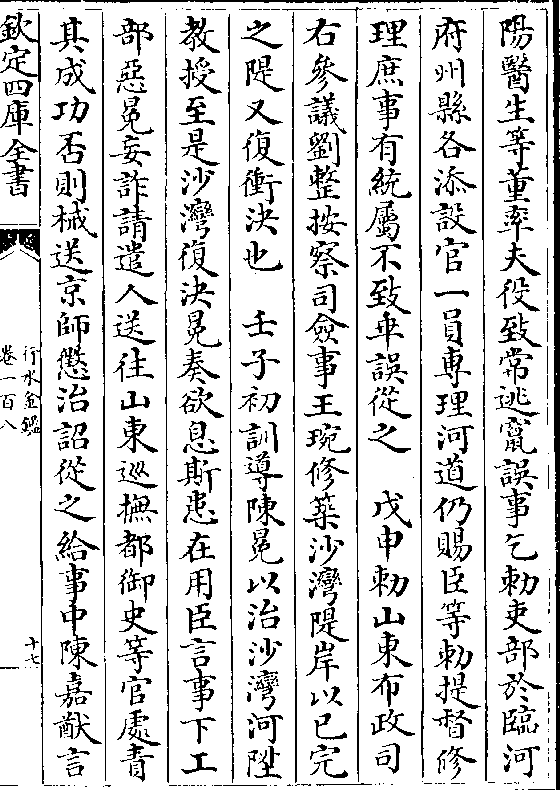 陽醫生等董率夫役致常逃竄誤事乞勅吏部於臨河
府州縣各添設官一員專理河道仍賜臣等勅提督修
理庶事有統屬不致乖誤從之　戊申勅山東布政司
右參議劉整按察司僉事王琬修築沙灣隄岸以已完
之隄又復衝決也　壬子初訓導陳冕以治沙灣河陞
教授至是沙灣復決冕奏欲息斯患在用臣言事下工
部惡冕妄詐請遣人送往山東巡撫都御史等官處責
其成功否則械送京師懲治詔從之給事中陳嘉猷言
欽定四庫全書
行水金鑑
卷一百八
十七